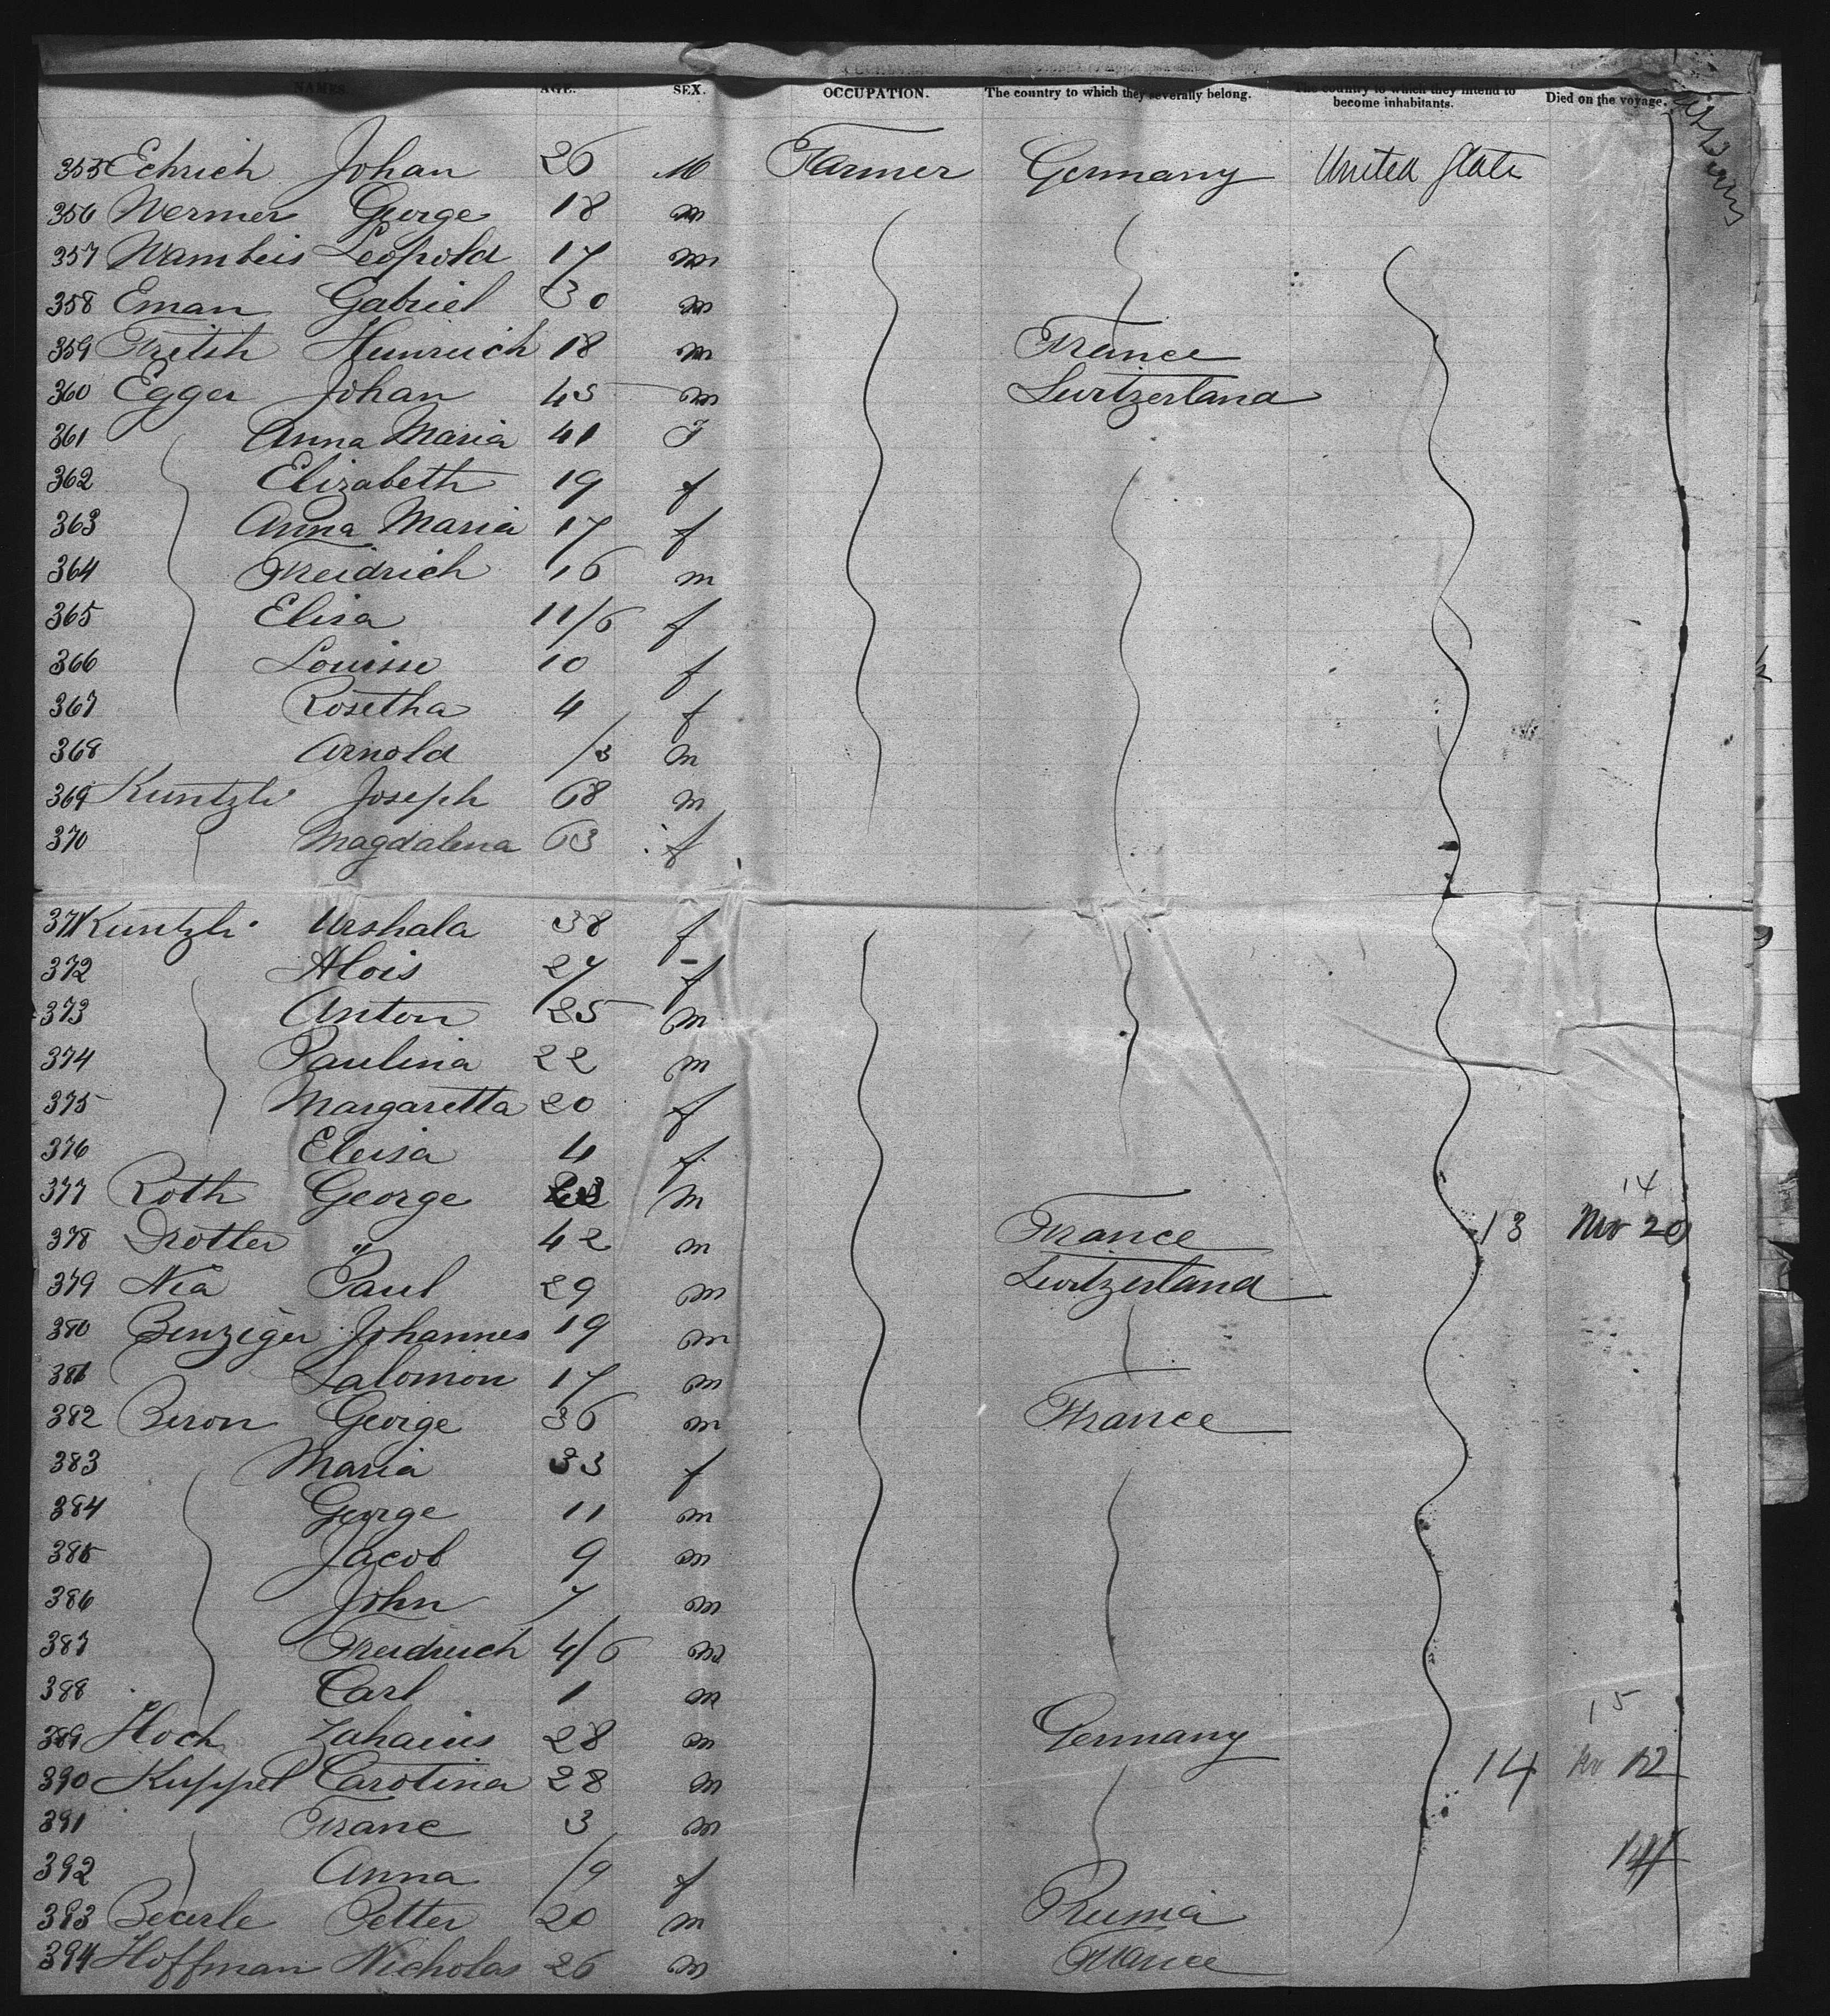 NAMES. AGE. SEX. OCCUPATION. The country to which they severally belong. The country to which they intend to become inhabitants. Died on the voyage.
355 Echrich Johan 26 M Farmer Germany United State
356 Wermer George 18 m
357 Wambeis Leopold 17 m
358 Eman Gabriel 30 m
359 Fritsh Heinreich 18 m France
360 Egger Johan 45 m Switzerland
361 Anna Maria 41 F
362 Elizabeth 19 f
363 Anna Maria 17 f
364 Freidrich 16 m
365 Elisa 11/6 f
366 Louise 10 f
367 Rosetha 4 f
368 Arnold /3 m
369 Kuntzli Joseph 68 m
370 Magdalena 63 f
371 Kuntzli Urshala 38 f
372 Alois 27 f
373 Anton 25 m
374 Paulina 22 m
375 Margaretta 20 f
376 Eleisa 4 f
377 Roth George m 14
378 Drotler " 42 m France 13 Nov 20
379 Nia Paul 29 m Switzerland
380 Benziger Johannes 19 m
381 Salomon 17 m
382 Beron George 36 m France
383 Maria 33 f
384 George 11 m
385 Jacob 9 m
386 John 7 m
387 Freidrich 4/6 m
388 Carl 1 m
389 Hoch 28 m Germany 15
390 Kuppel Carolina 28 m 14 12
391 Franc 3 m
392 Anna /9 f
393 Becerle Petter 20 m
394 Hoffman Nicholas 26 m France